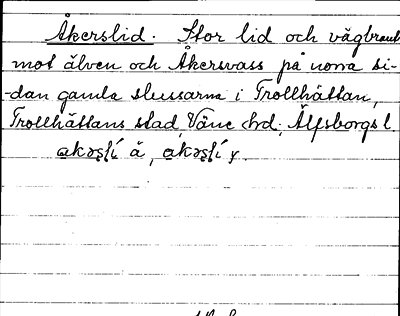 Åkerslid. Stor lid och vägbrant
mot älven och Åkersvass på norra si-
-dan gamla slussarna i Trollhättan,
Trollhättans stad, Väne hd, Älfsborgs l.